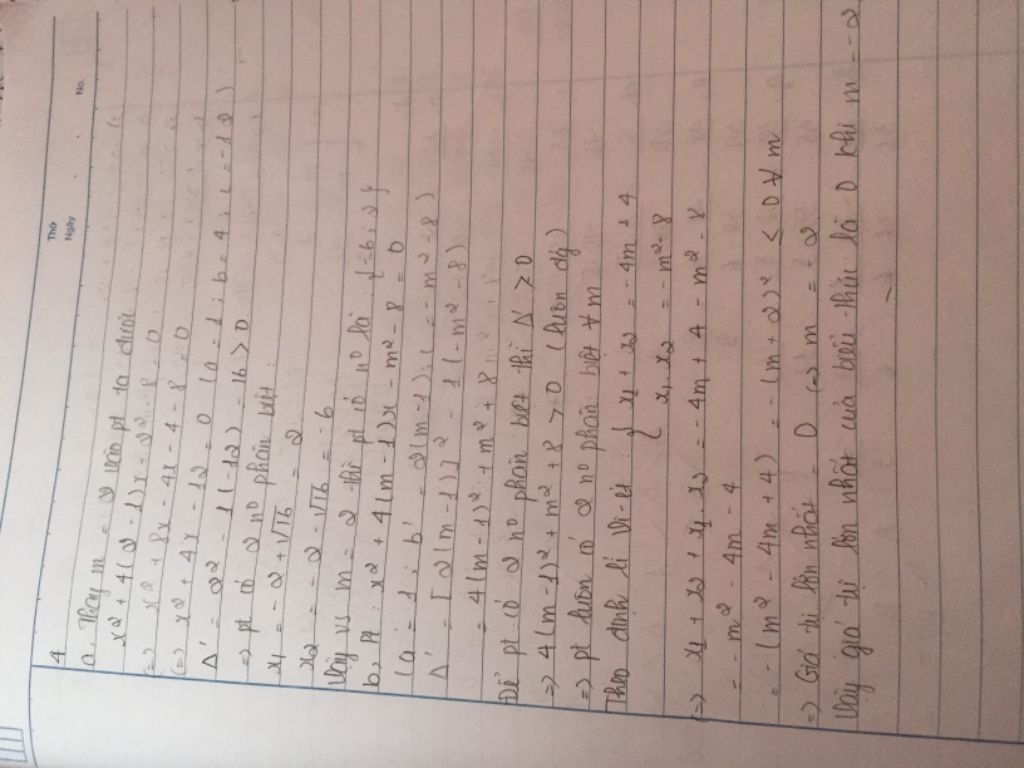 Thứ
Ngày
No.
4
a. Thay m = 2 vào pt ta được
x² + 4(2 - 1)x - 2² - 8 = 0
(=) x² + 8x - 4x - 4 - 8 = 0
(=) x² + 4x - 12 = 0 (a = 1; b = 4; c = -12)
Δ' = 2² - 1(-12) = 16 > 0
=> pt có 2 n⁰ phân biệt:
x₁ = -2 + √16 = 2
x₂ = -2 - √16 = -6
Vậy vs m = 2 thì pt có n⁰ là {-6; 2}
b, pt: x² + 4(m - 1)x - m² - 8 = 0
(a = 1; b' = 2(m - 1); c = -m² - 8)
Δ' = [2(m - 1)]² - 1(-m² - 8)
= 4(m - 1)² + m² + 8
Để pt có 2 n⁰ phân biệt thì Δ' > 0
=> 4(m - 1)² + m² + 8 > 0 (luôn đg)
=> pt luôn có 2 n⁰ phân biệt ∀ m
Theo định lí Vi-ét: { x₁ + x₂ = -4m + 4
x₁.x₂ = -m² - 8
(=> x₁ + x₂ + x₁.x₂ = -4m + 4 - m² - 8
= -m² - 4m - 4
= -(m² - 4m + 4) = -(m + 2)² ≤ 0 ∀ m
=> Giá trị lớn nhất = 0 (=) m = -2
Vậy giá trị lớn nhất của biểu thức là 0 khi m = -2